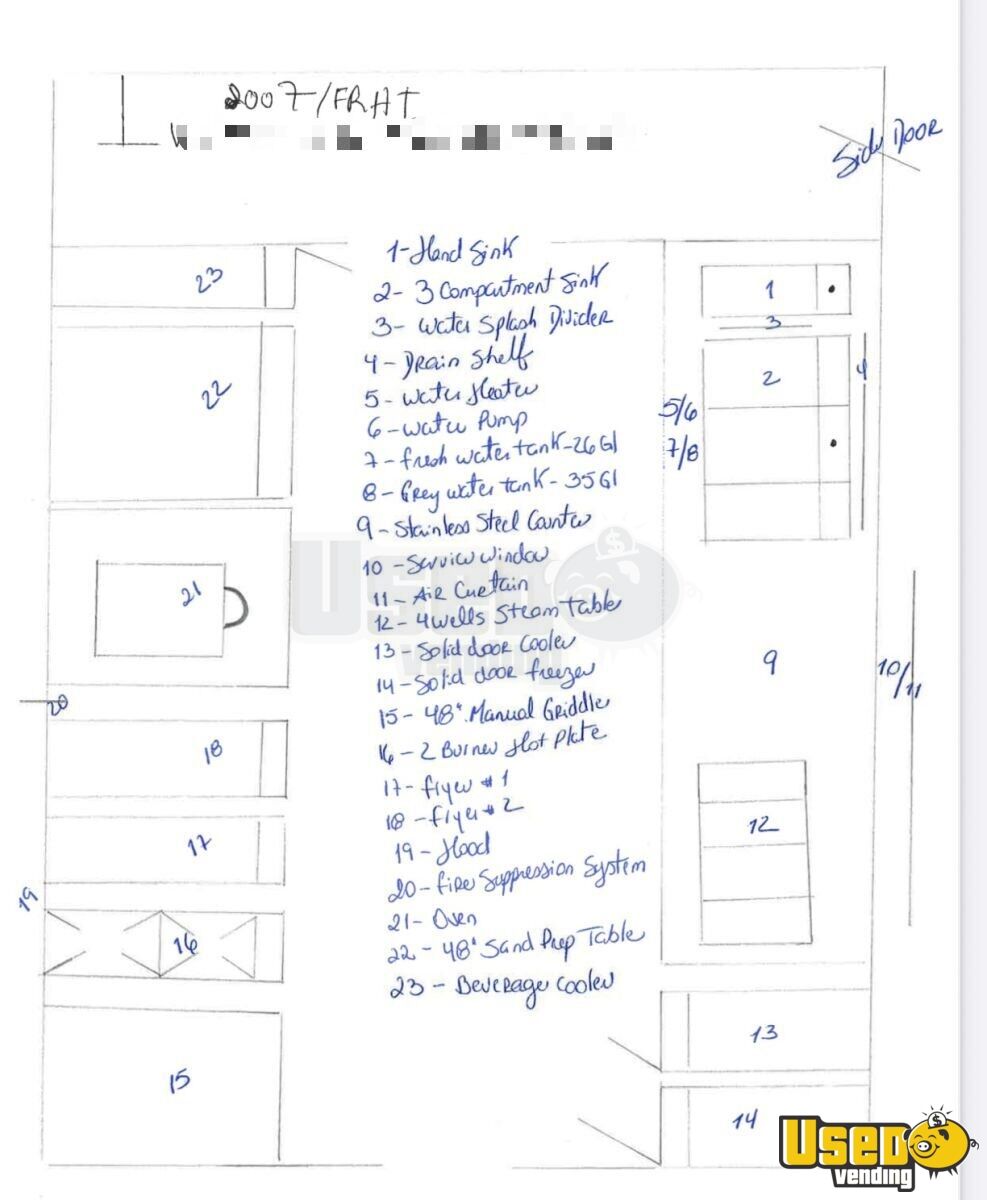 2007/FRHT
Side Door
1-Hand Sink
2- 3 Compartment Sink
3- Water Splash Divider
4- Drain Shelf
5- Water Heater
6- Water Pump
7- fresh water tank-26Gl
8- Grey water tank- 35Gl
9- Stainless Steel Counter
10- Service window
11- Air Curtain
12- 4 wells Steam Table
13- Solid door Cooler
14- Solid door freezer
15- 48" Manual Griddle
16- 2 Burner Hot Plate
17- fryer #1
18- fryer #2
19- Hood
20- Fire Suppression System
21- Oven
22- 48" Sand Prep Table
23- Beverage Cooler
23
22
21
20
18
17
19
16
15
1
3
2
4
5/6
7/8
9
10/11
12
13
14
USED
vending
USED
vending